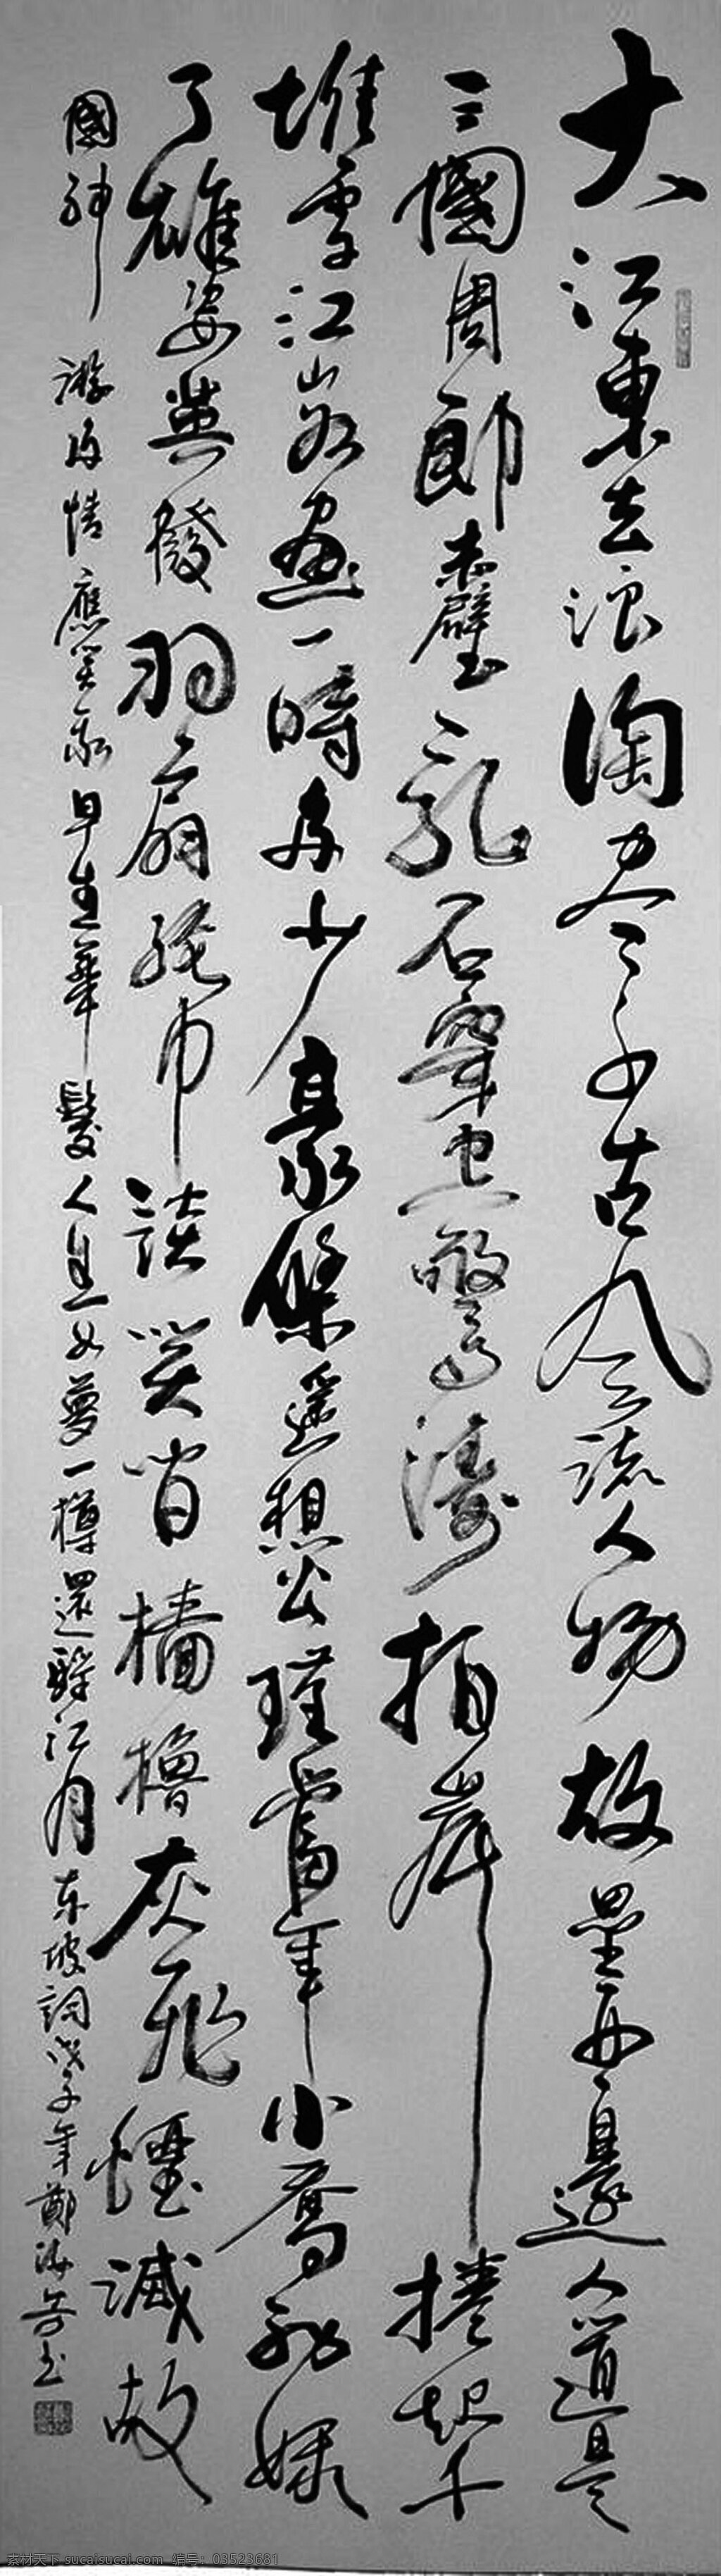 大江東去浪淘尽千古風流人物故壘西邊人道是
三國周郎赤壁亂石穿空驚濤拍岸捲起千
堆雪江山如画一時多少豪傑遙想公瑾當年小喬初嫁
了雄姿英發羽扇綸巾談笑間檣櫓灰飛煙滅故
國神游多情應笑我早生華髮人生如夢一樽還酹江月 东坡詞戊子年鄭海书
素材天下 sucaisucai.com 编号：03523681